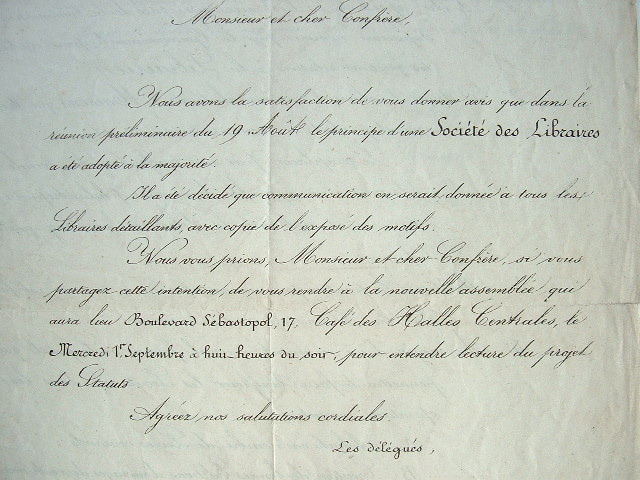 Monsieur et cher Confrère,
Nous avons la satisfaction de vous donner avis que dans la
réunion preliminaire du 19 Août le principe d'une Société des Libraires
a été adopté à la majorité.
Il a été décidé que communication en serait donnée à tous les
Libraires détaillants, avec copie de l'exposé des motifs.
Nous vous prions, Monsieur et cher Confrère, si vous
partagez cette intention, de vous rendre à la nouvelle assemblée qui
aura lieu Boulevard Sébastopol, 17, Café des Halles Centrales, le
Mercredi 1er Septembre à huit heures du soir, pour entendre lecture du projet
des Statuts
Agréez, nos salutations cordiales.
Les délégués,